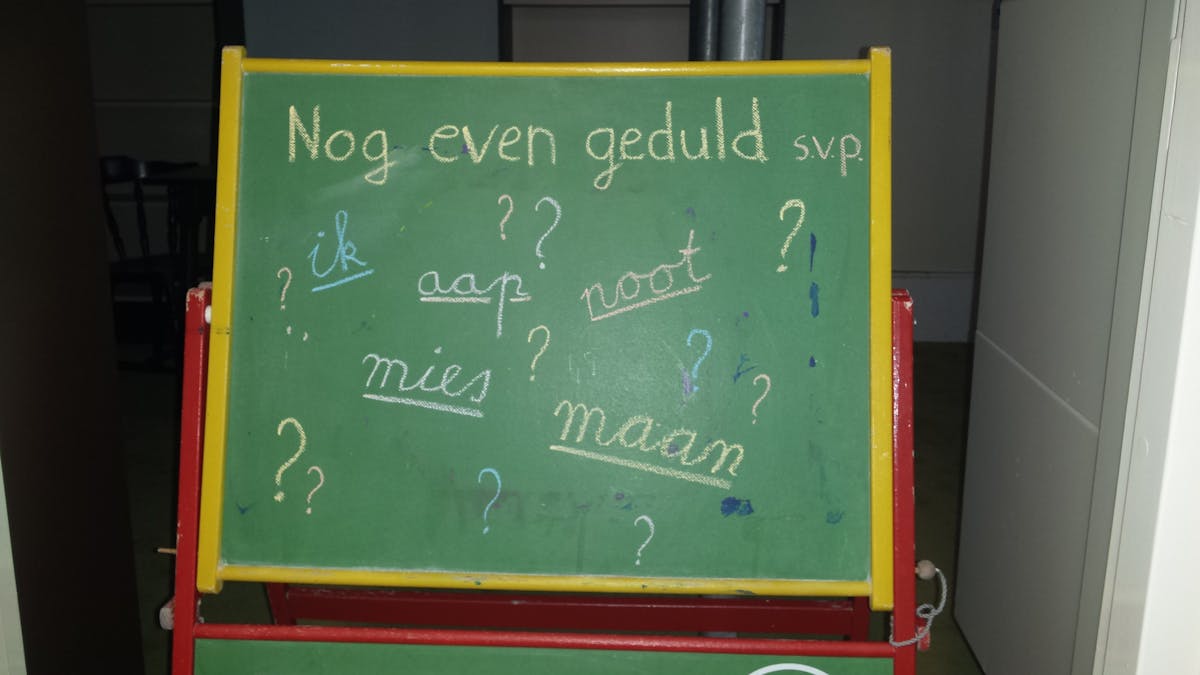 Nog even geduld s.v.p.
? ? ?
ik
? aap noot
? ?
mies ?
maan
? ?
?
?